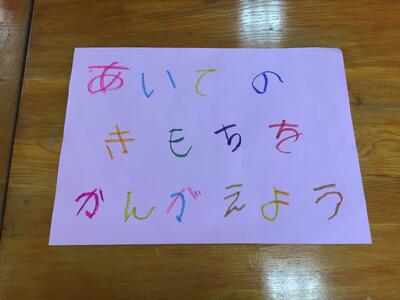 あいての
きもちを
かんがえよう